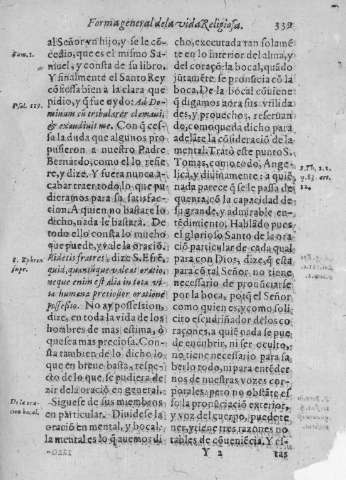 Forma general de la vida Religiosa. 339
al Señor vn hijo, y se le cõ-
cedio, que es el mismo Sa-
muel, y consta de su libro.
Y finalmente el Santo Rey
cõfiessa bien a la clara que
pidio, y q̃ fue oydo: Ad Do-
minum cũ tribularer clamaui,
& exaudiuit me. Con q̃ ces-
sa la duda que algunos pro-
pusieron a nuestro Padre
Bernardo, como el lo refie-
re, y dize. Y fuera nunca a-
cabar traer todo, lo que pu-
dieramos para su satisfac-
cion. A quien no bastare lo
dicho, nada le bastará. De
todo ello consta lo mucho
que puede, y vale la oració.
Ridetis fratres, dize S. Efrẽ,
quid, quantũque valeat oratio,
neque enim est alia in tota vi-
ta humana preciosior oratione
possessio. No ay possession,
dize, en toda la vida de los
hombres de mas estima, ò
que sea mas preciosa. Con-
sta tambien de lo dicho lo
que en breue basta, respe-
cto de lo que se pudiera de-
zir de la oració en general.
Siguese de sus miembros
en particular. Diuidese la
oració en mental, y bocal.
la mental es lo q̃ auemos di-
Tom. 1.
Psal. 119.
S. Ephren
supr.
De la ora-
cion bocal.
cho, executada tan solamẽ-
te en lo interior del alma, y
del coraçõ: la bocal, quãdo
jũtamẽte se pronũcia cõ la
boca. De la bocal cõuiene
q̃ digamos aora sus vtilida
des, y prouechos, reseruan
do, como queda dicho para
adelãte la cõsideració de la
mental. Trató este punto S.
Tomas, como todo, Ange-
lica, y diuinamente: a quiẽ
nada parece q̃ se le passa de
quenta, cõ la capacidad de
su grande, y admirable en-
tẽdimiẽto. Hablãdo pues
el glorioso Santo de la ora
ció particular de cada qual
para con Dios, dize, q̃ esta
para cõ tal Señor no tiene
necessario de pronũciarse
por la boca, porq̃ el Señor
como quien es, y como soli-
cito escudriñador de los co-
raçones, a quiẽ nada se pue
de encubrir, ni ser oculto,
no tiene necessario para sa-
berlo todo, ni para entẽder
nos de nuestras vozes cor-
porales: pero no obstãte es
so la pronũciació exterior,
y voz del cuerpo, puede te
ner, y tiene tres razones no
tables de cõueniẽcia. Y es-
S. Th. 2. 2.
q. 83. art.
12.
Y 2
tas